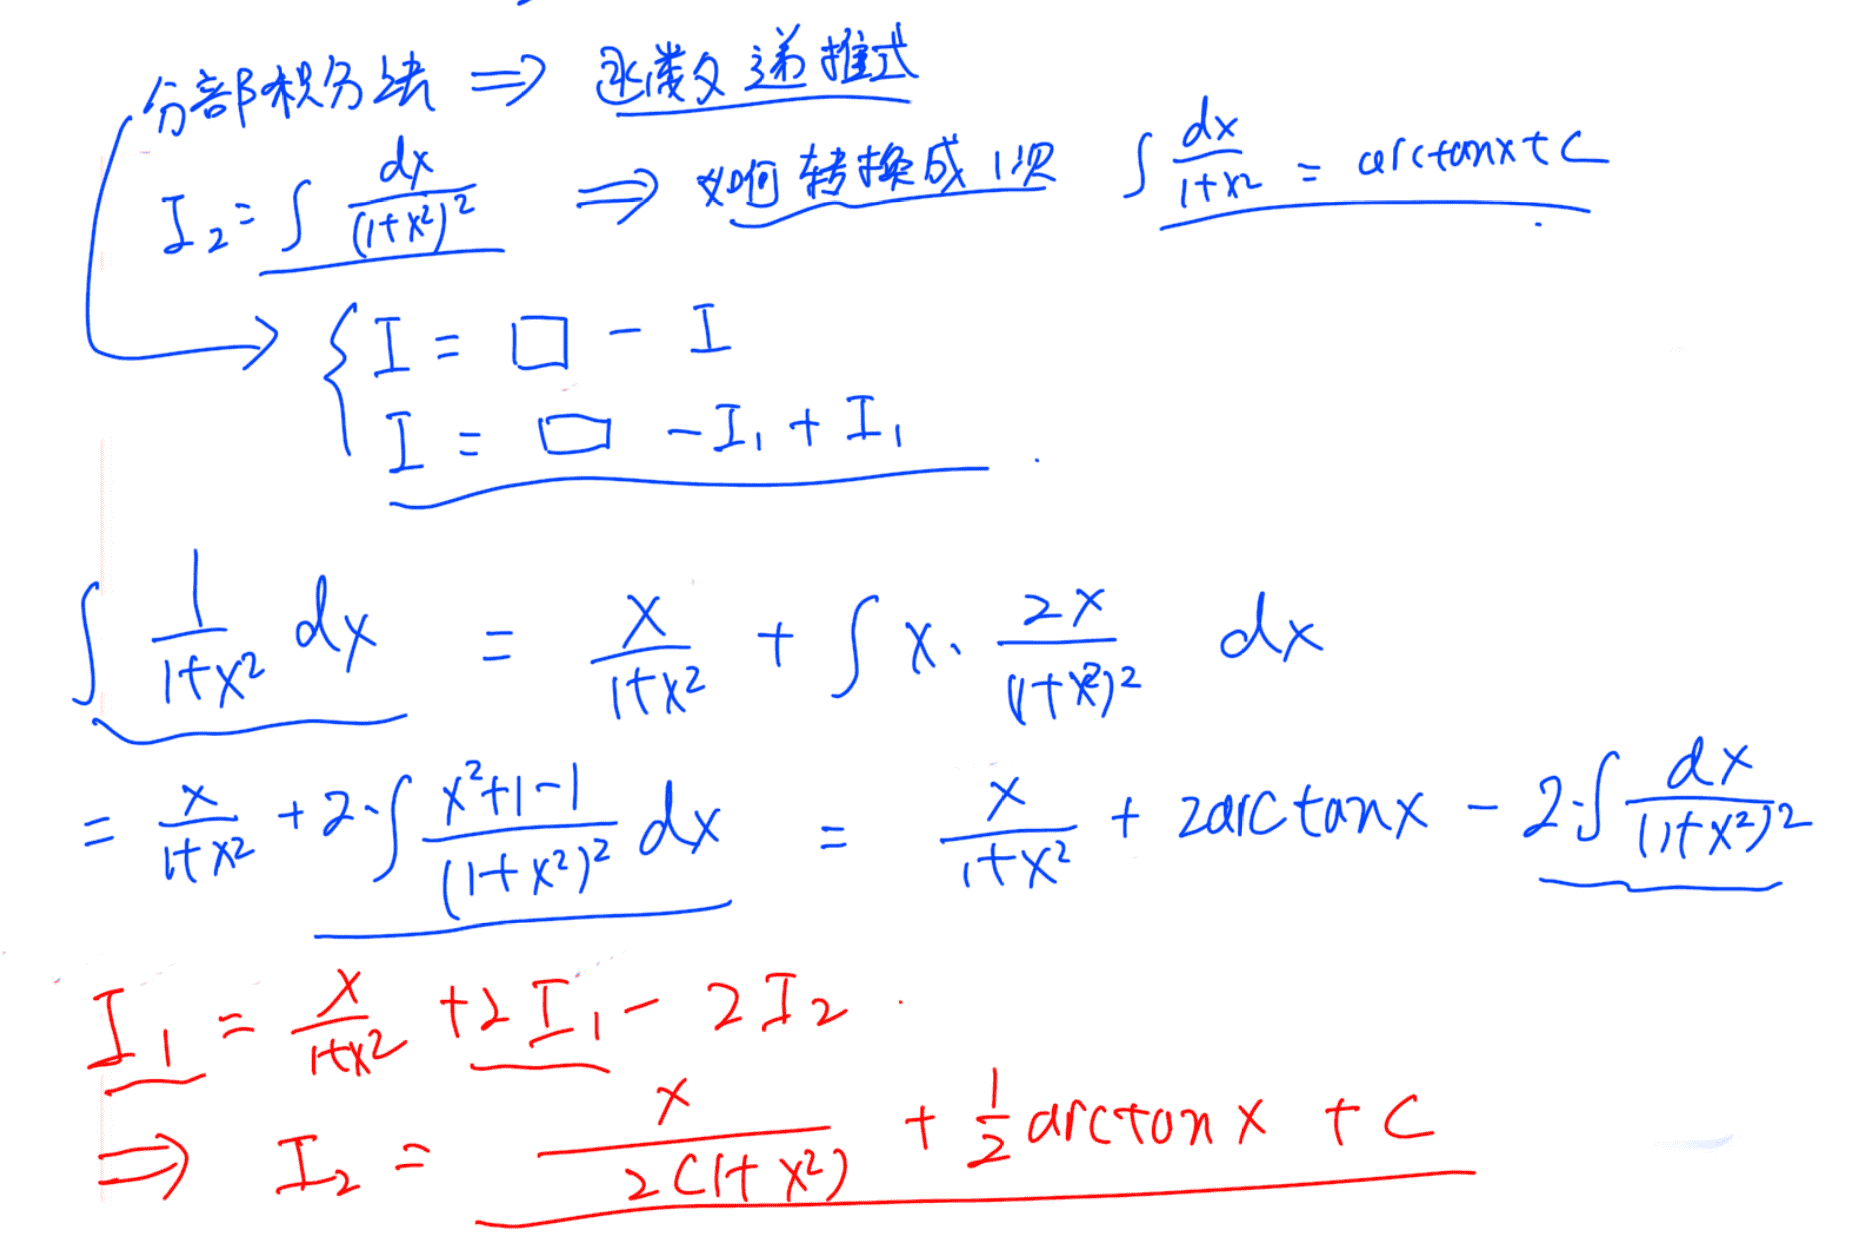 分部积分法 ⇒ 函数递推式
I₂ = ∫ dx/(1+x²)² ⇒ 如何转换成1次 ∫ dx/(1+x²) = arctanx + C
{ I = □ - I
I = □ - I₁ + I₁
∫ 1/(1+x²) dx = x/(1+x²) + ∫ x · 2x/(1+x²)² dx
= x/(1+x²) + 2·∫ (x²+1-1)/(1+x²)² dx = x/(1+x²) + 2arctanx - 2·∫ dx/(1+x²)²
I₁ = x/(1+x²) + 2I₁ - 2I₂
⇒ I₂ = x/(2(1+x²)) + 1/2 arctanx + C